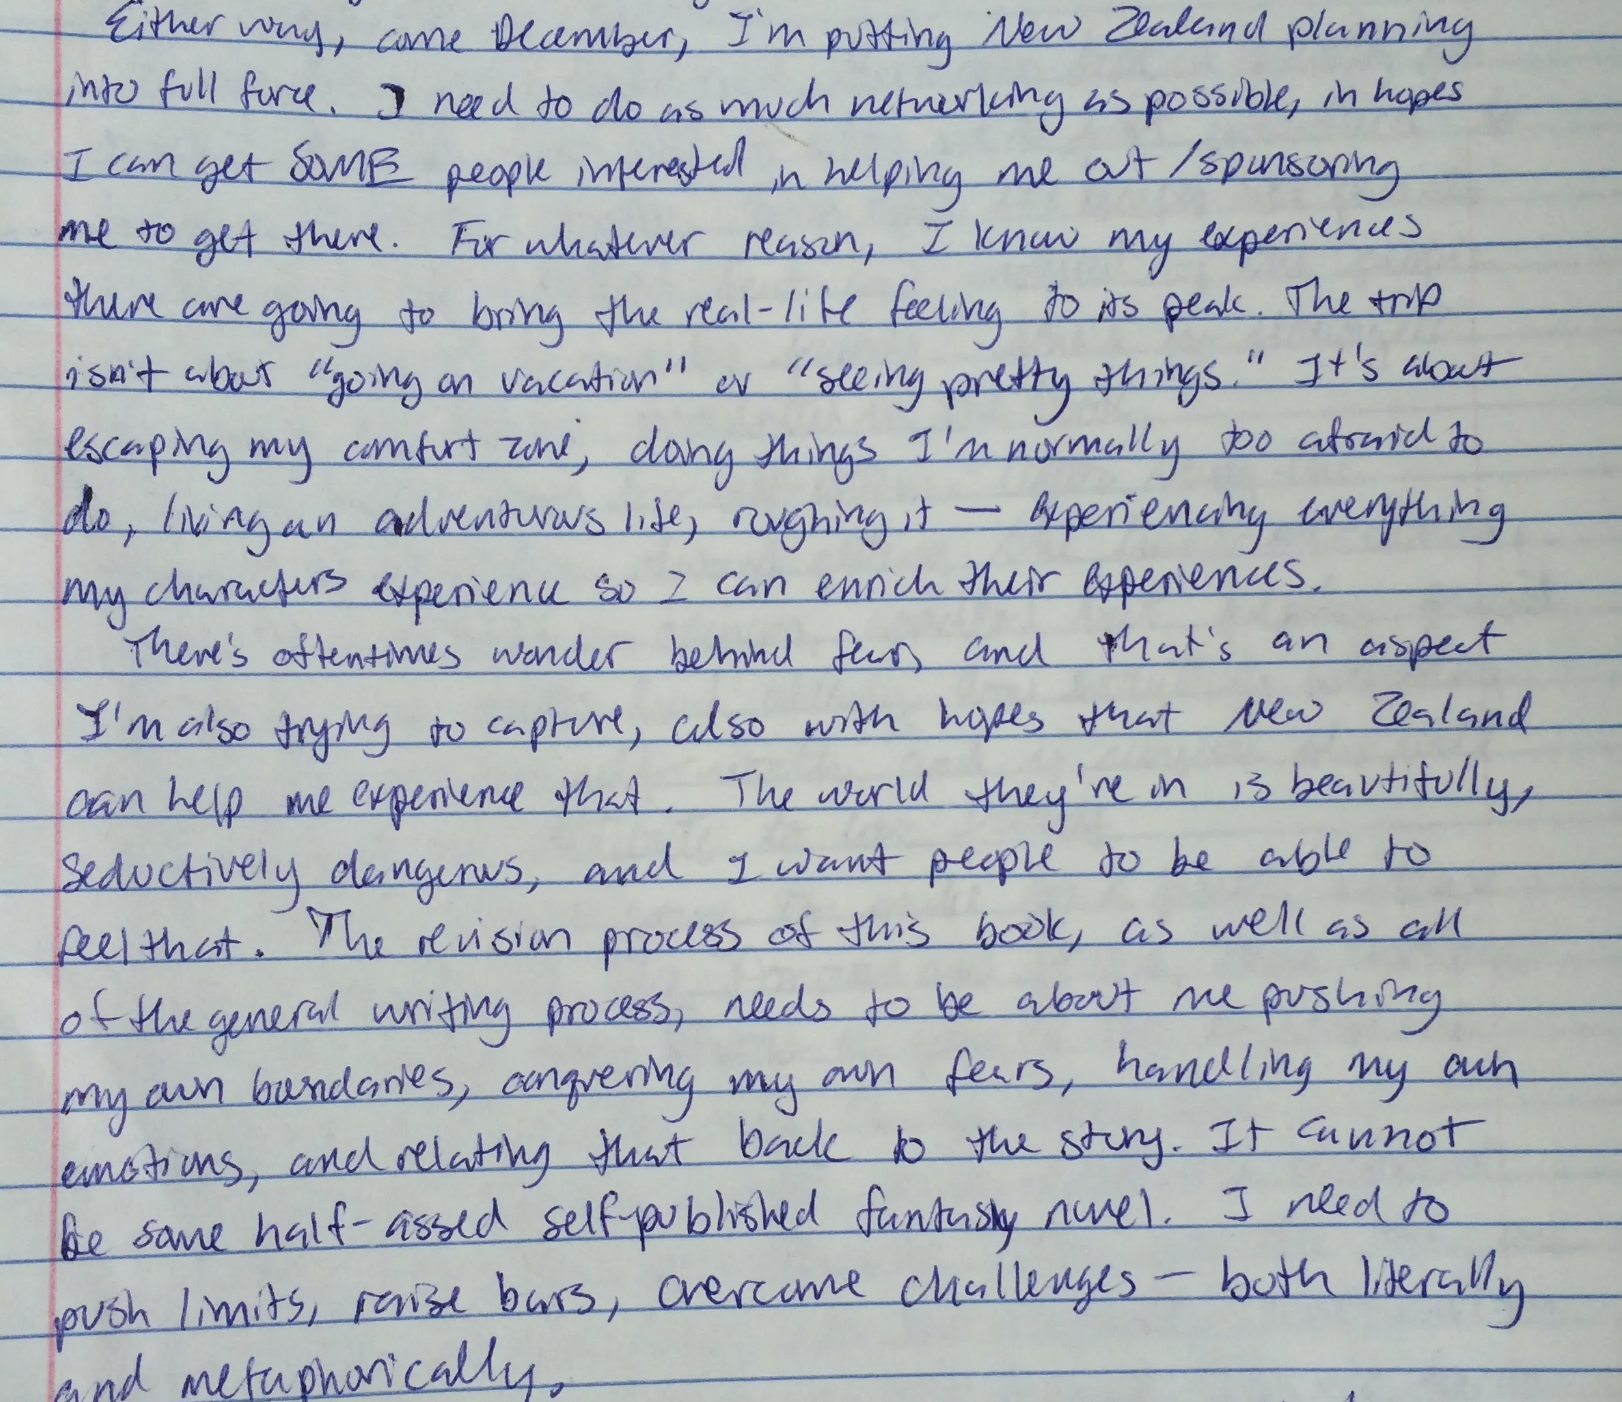 Either way, come December, I'm putting New Zealand planning
into full force. I need to do as much networking as possible, in hopes
I can get SOME people interested in helping me out/sponsoring
me to get there. For whatever reason, I know my experiences
there are going to bring the real-life feeling to its peak. The trip
isn't about "going on vacation" or "seeing pretty things." It's about
escaping my comfort zone, doing things I'm normally too afraid to
do, living an adventurous life, roughing it — experiencing everything
my characters experience so I can enrich their experiences.
There's oftentimes wonder behind fear, and that's an aspect
I'm also trying to capture, also with hopes that New Zealand
can help me experience that. The world they're in is beautifully,
seductively dangerous, and I want people to be able to
feel that. The revision process of this book, as well as all
of the general writing process, needs to be about me pushing
my own boundaries, conquering my own fears, handling my own
emotions, and relating that back to the story. It cannot
be some half-assed self-published fantasy novel. I need to
push limits, raise bars, overcome challenges — both literally
and metaphorically.